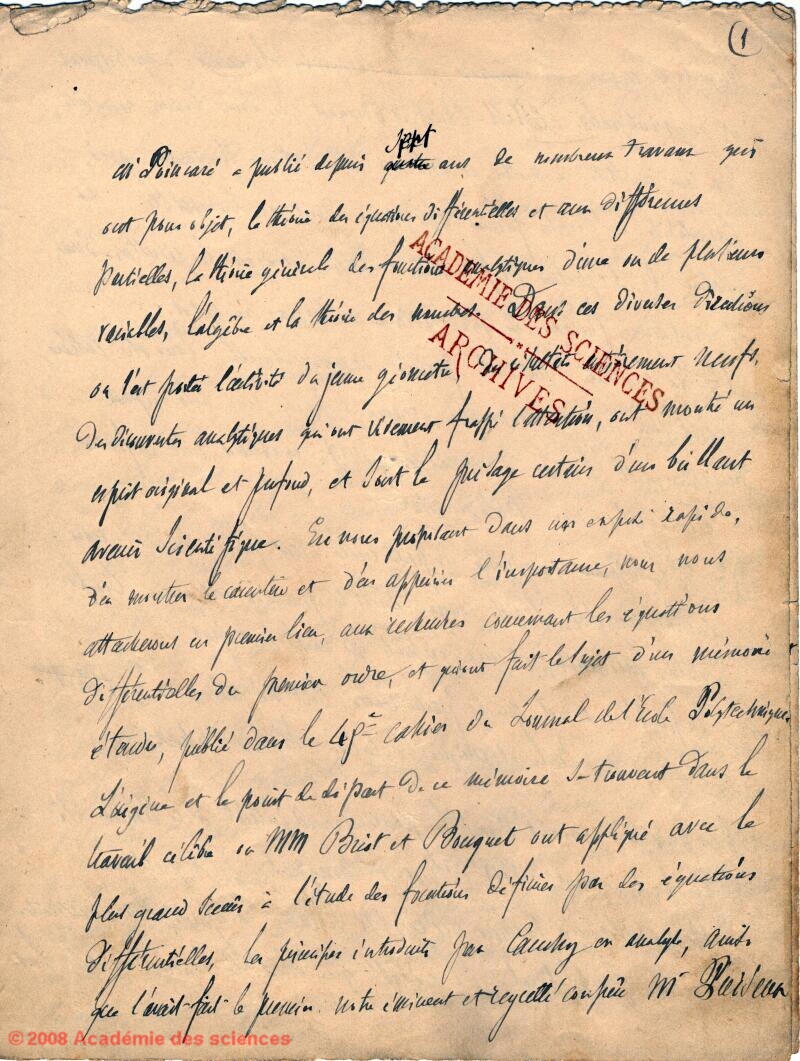 1
Mr Poincaré a publié depuis quatre sept ans de nombreux travaux qui
ont pour objet, la théorie des équations différentielles et aux différences
partielles, la théorie générale des fonctions analytiques d'une ou de plusieurs
variables, l'algèbre et la théorie des nombres. Dans ces diverses directions
où s'est portée l'activité du jeune géomètre, des résultats entièrement neufs,
des découvertes analytiques qui ont vivement frappé l'attention, ont montré un
esprit original et profond, et sont le présage certain d'un brillant
avenir scientifique. En nous proposant dans un exposé rapide,
d'en montrer le caractère et d'en apprécier l'importance, nous nous
attacherons en premier lieu, aux recherches concernant les équations
différentielles du premier ordre, et qui ont fait le sujet d'un mémoire
étendu, publié dans le cahier du Journal de l'École Polytechnique.
L'origine et le point de départ de ce mémoire se trouvent dans le
travail célèbre où MM Briot et Bouquet ont appliqué avec le
plus grand succès à l'étude des fonctions définies par des équations
différentielles, les principes introduits par Cauchy en analyse, ainsi
que l'avait fait le premier notre éminent et regretté confrère Mr Puiseux
ACADÉMIE DES SCIENCES
ARCHIVES
© 2008 Académie des sciences